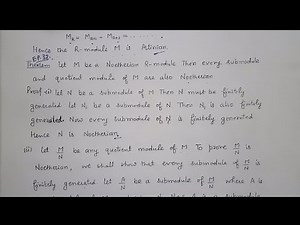 M_k = M_k+1 = M_k+2 = ........
Hence the R-module M is Artinian.
Theorem: Let M be a Noetherian R-module Then every submodule
and quotient module of M are also Noetherian
Proof:(i) Let N be a submodule of M Then N must be finitely
generated let N₁ be a submodule of N Then N₁ is also finitely
generated. Now every submodule of N is finitely generated
Hence N is Noetherian.
(ii) Let M/N be any quotient module of M. To prove M/N is
Noetherian, we shall show that every submodule of M/N is
finitely generated let A/N be a submodule of M/N where A is